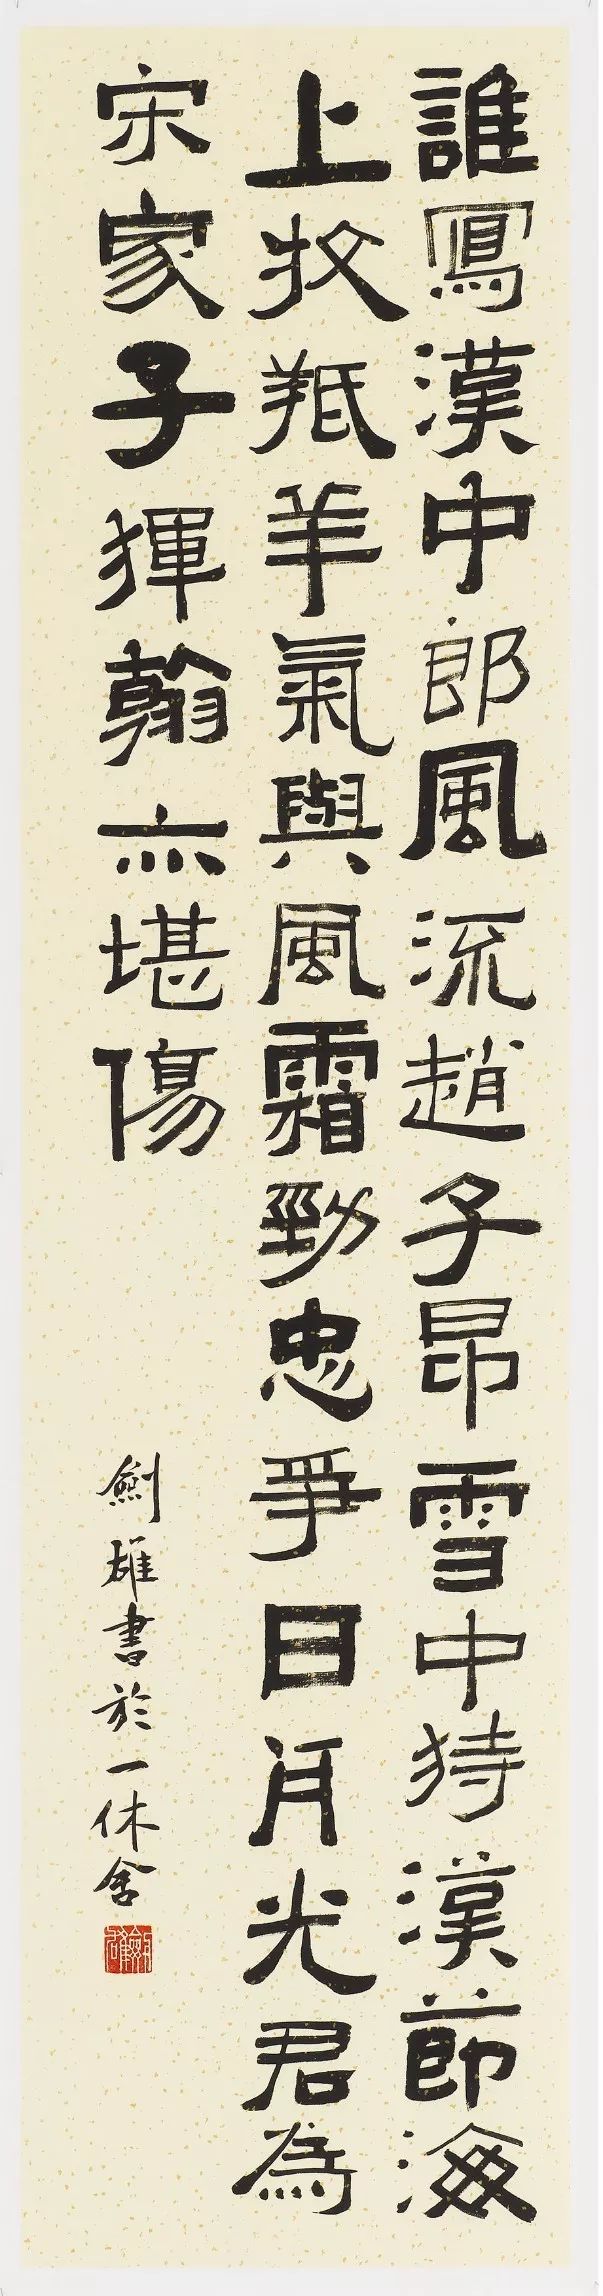 誰寫漢中郎風流趙子昂雪中持漢節海
上牧羝羊氣與風霜勁忠爭日月光君為
宋家子揮翰亦堪傷
劍雄書於一休舍
劍雄